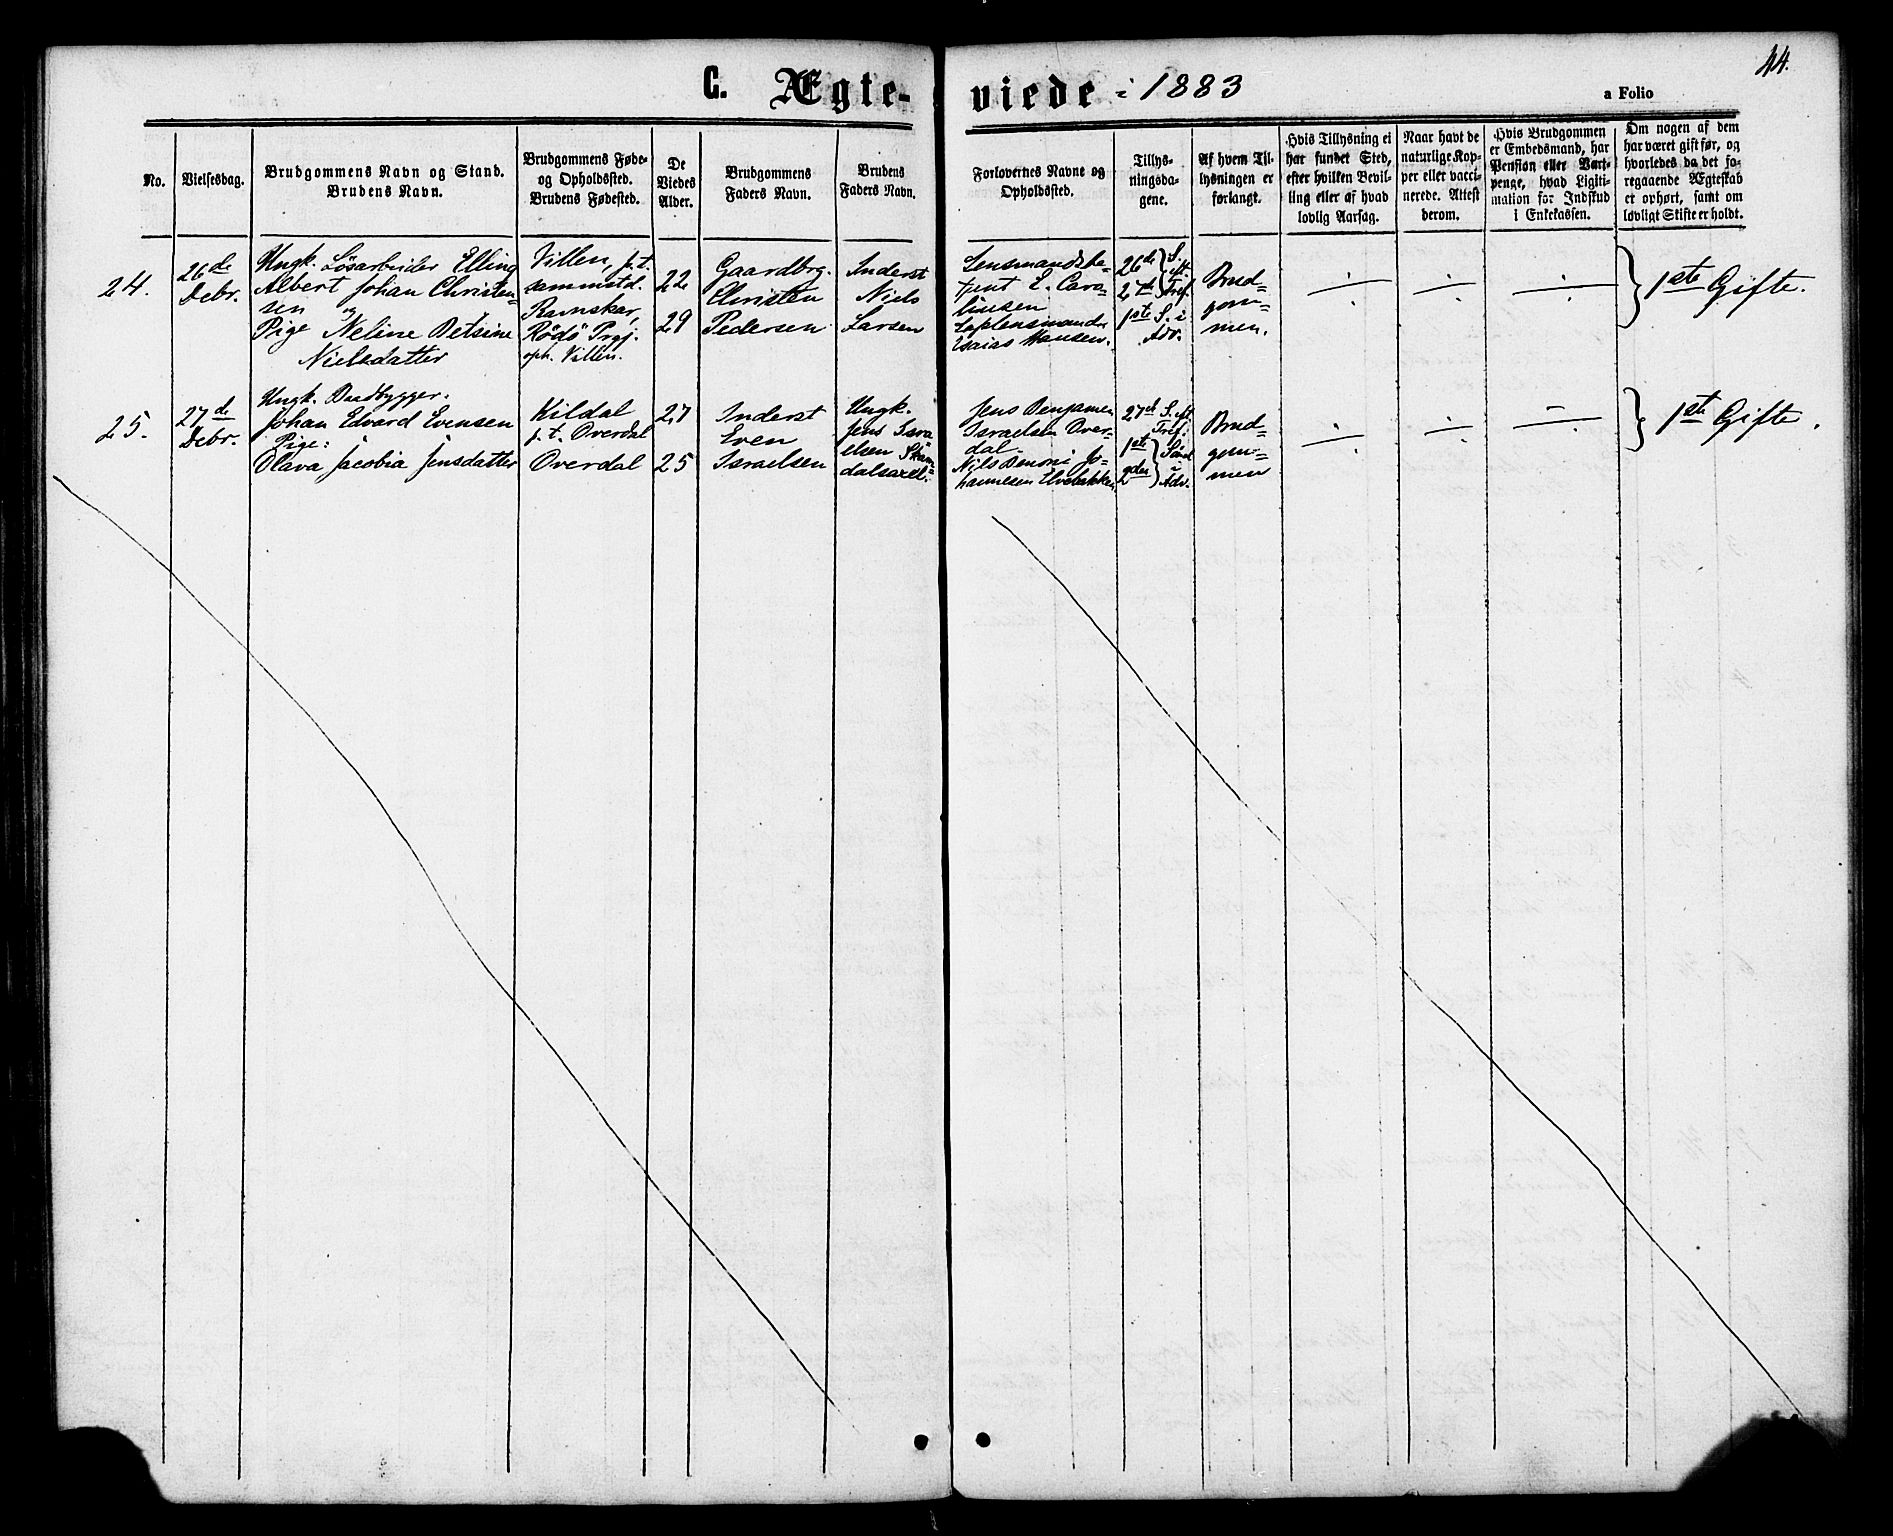 44.
C. Ægte-viede i 1883
a Folio
No.
Vielsesdag.
Brudgommens Navn og Stand.
Brudens Navn.
Brudgommens Føde-
og Opholdssted.
Brudens Fødested.
De
Viedes
Alder.
Brudgommens
Faders Navn.
Brudens
Faders Navn.
Forlovernes Navne og
Opholdssted.
Tillys-
ningsda-
gene.
Af hvem Til-
lysningen er
forlangt.
Hvis Tillysning ei
har fundet Sted,
efter hvilken Bevil-
ling eller af hvad
lovlig Aarsag.
Naar havt de
naturlige Kop-
per eller vacci-
nerede. Attest
derom.
Hvis Brudgommen
er Embedsmand, har
Pension eller Vart-
penge, hvad Ligiti-
mation for Indskud
i Enkekassen.
Om nogen af dem
har været gift før, og
hvorledes da det fo-
regaaende Ægteskab
er ophørt, samt om
lovligt Skifte er holdt.
24.
26de
Debr.
Ungk. Løsarbeider Elling
Albert Johan Christen-
sen og
Pige Neline Betsine
Nielsdatter
Villen, p.t.
sammstd.
Ramskar,
Rödö Præj.
oph. Villen.
22
29
Gaardbrg.
Christen
Pedersen
Inderst
Niels
Larsen
Lensmandsbe-
tjent E. Caro-
liussen
Laplensmand
Esaias Hansen.
26de S.
27de eft. Tref.
1ste S. i
Adv.
Brud-
gom-
men.
1ste Gifte.
25.
27de
Debr.
Ungk. Baadbygger.
Johan Edvard Evensen
Pige:
Olava Jacobia Jensdatter
Kildal
p.t. Overdal
Overdal
27
25
Inderst
Even
Israelsen
Ungk.
Jens Isra
elsen
Jens Benjamen
Israelsen Over-
dal
Nils Benoni Jo-
hannesen Elvebakken
27de S. eft
Tref.
1ste
2den Sönd i Adv.
Brud-
gom-
men
1ste Gifte.